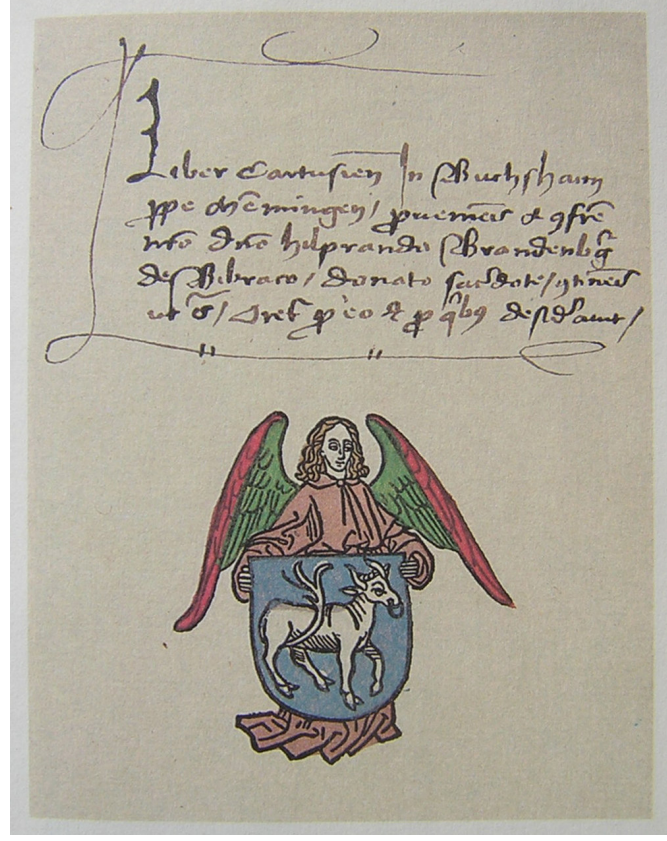 Liber Cartusien In Buchshaim
ppe Memingen, proueniens a 9fre
nro dno hilprando Brandenbg
de Bibraco, donato sacdote, 9tinens
vt s, Oret p eo et p qbg desidauit,